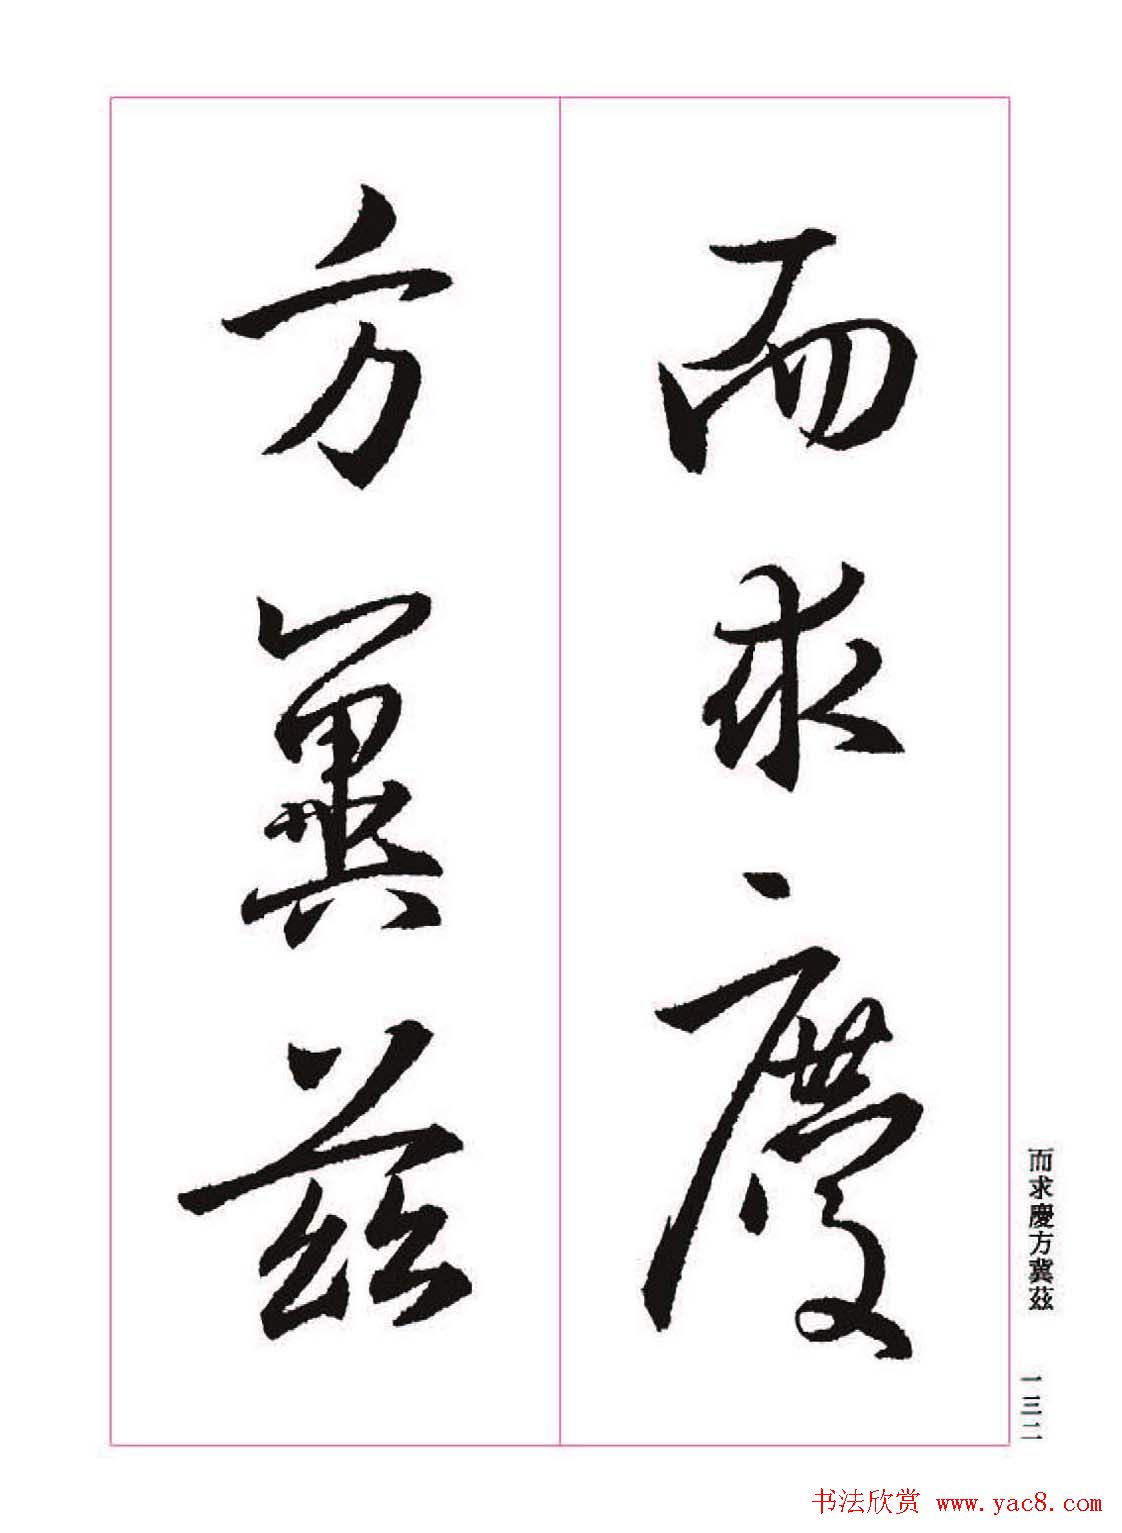 而求慶
方冀茲
而求慶方冀茲
一三二
书法欣赏 www.yac8.com